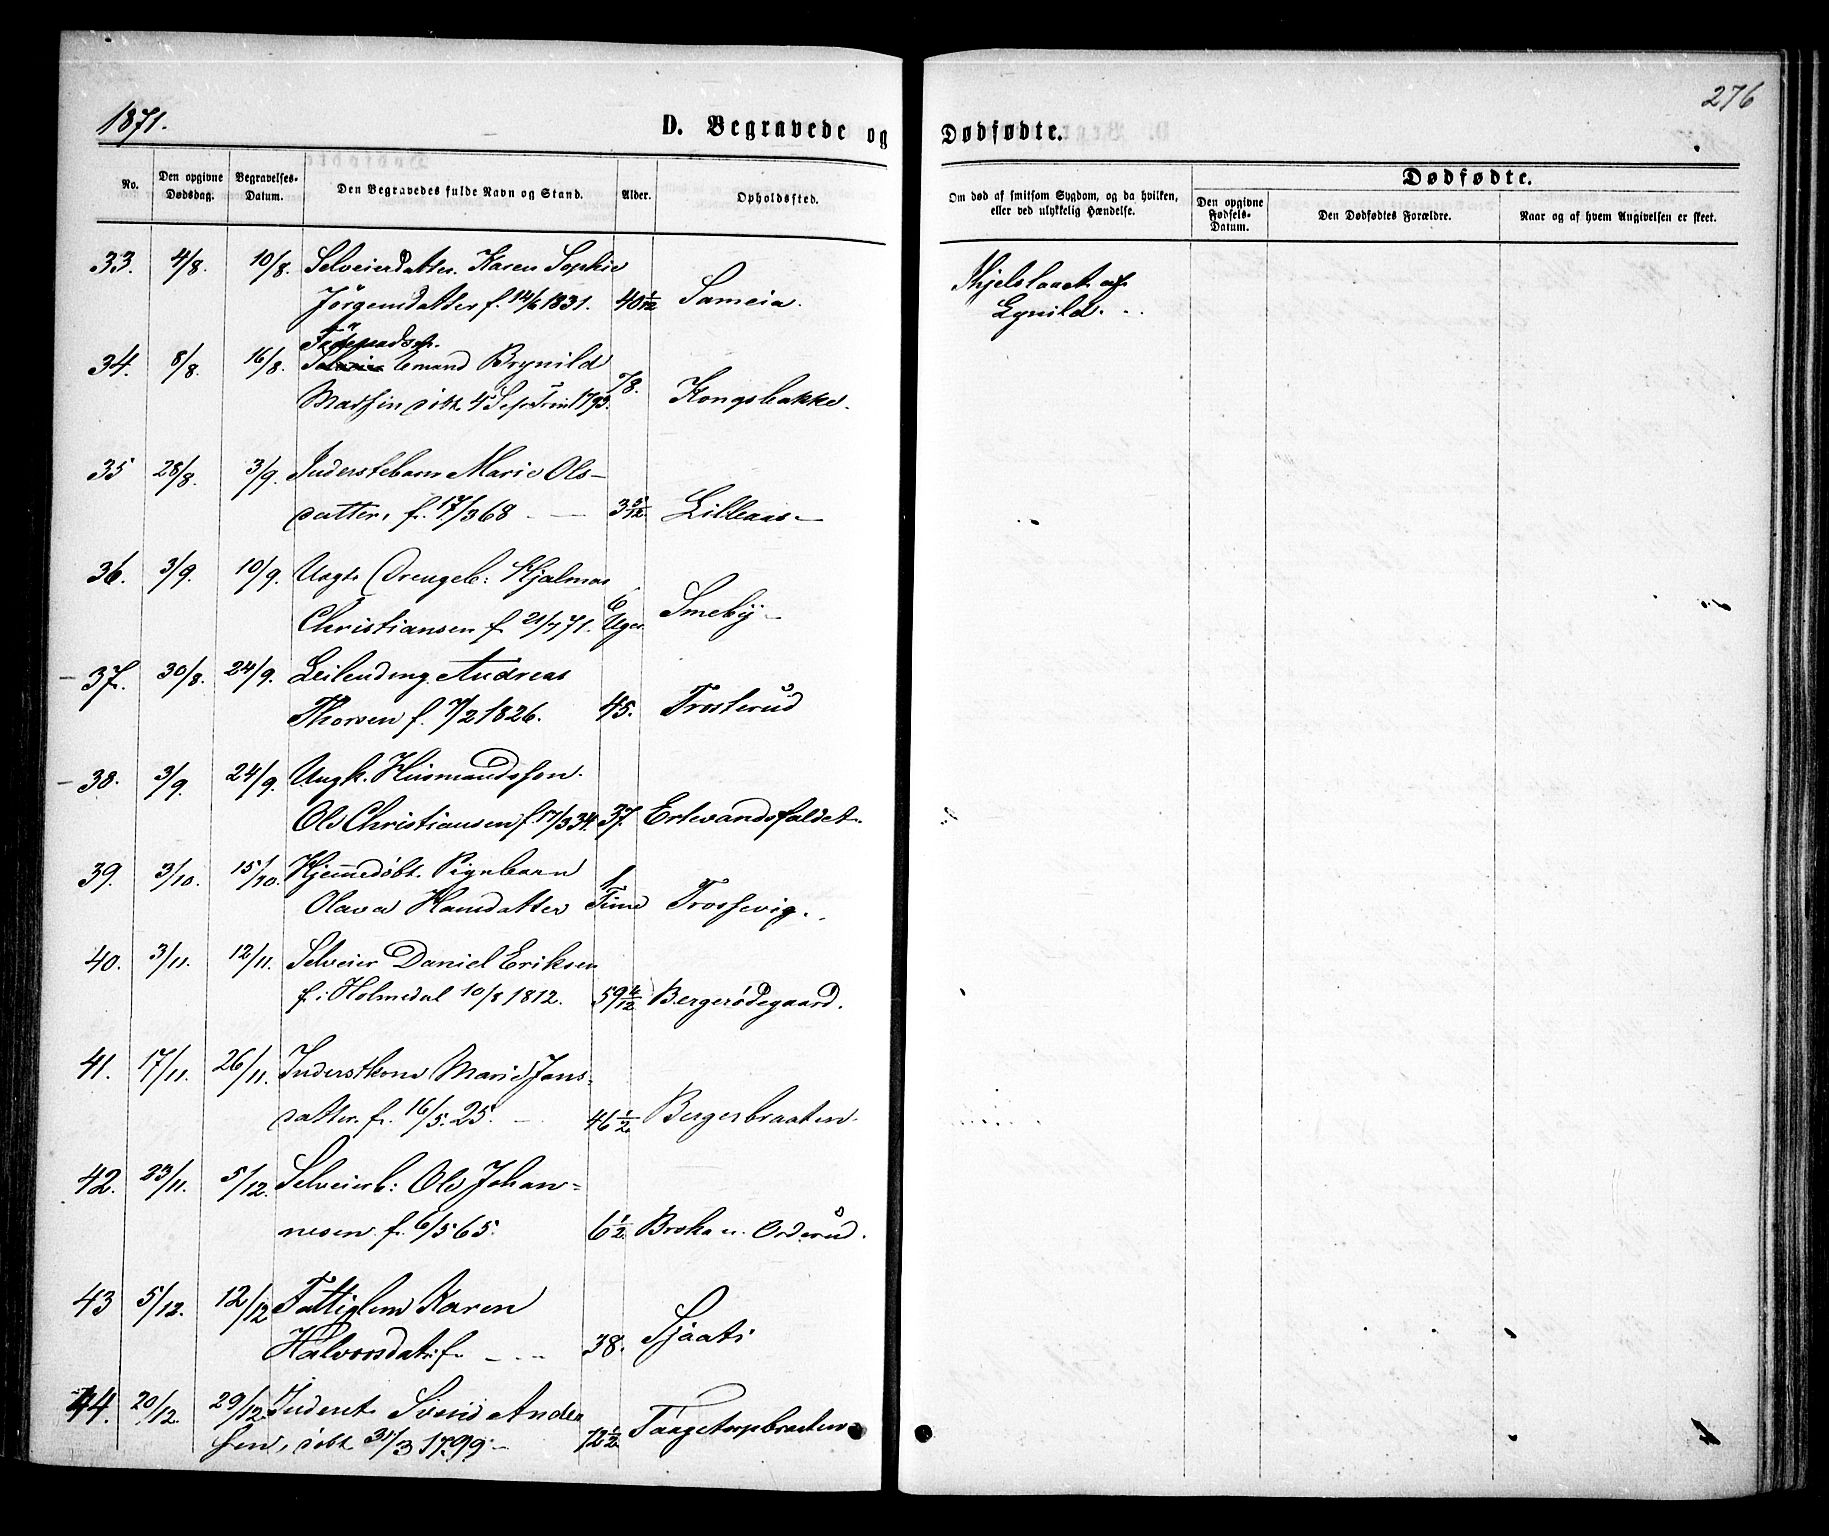 1871.
D. Begravede og Dødfødte.
276
No.
Den opgivne Dødsdag.
Begravelses-Datum.
Den Begravedes fulde Navn og Stand.
Alder.
Opholdssted.
Om død af smitsom Sygdom, og da hvilken, eller ved ulykkelig Hændelse.
Dødfødte.
Den opgivne Fødsels-Datum.
Den Dødfødtes Forældre.
Naar og af hvem Angivelsen er skeet.
33. 4/8. 10/8. Selveierdatter. Karen Sophie
Jörgensdatter f. 14/6 1831. 40 1/12 Sameia.
Ihjelslaaet af
Lynild.
Föderaads
34. 8/8. 16/8. Emand Brynild
Madsen døbt 4 S e Trin 1793. 78. Kongsbakke.
35 28/8. 3/9. Inderstebarn Marie Ols-
datter, f. 17/3 68 3 5/12. Lilleaas
36. 3/9. 10/9. Uægte Drengeb: Hjalmar
Christiansen f. 21/7 71. 6 Uger. Smeby
37. 30/8. 24/9. Leilending Andreas
Thorsen f. 7/2 1826. 45. Trosterud
38. 3/9. 24/9. Ungk. Husmandssøn
Ole Christiansen f. 17/3 34. 37. Ertevandsfaldet.
39. 3/10. 15/10. Hjemmedøbt. Pigebarn
Olava Hansdatter 1 Time Trossevig.
40. 3/11. 12/11. Selveier Daniel Eriksen
f. i Holmedal 10/8 1812. 59 4/12 Bergerødegaard.
41. 17/11. 26/11. Inderstkone Marie Jans-
datter. f. 16/5. 25. 46 1/2. Bergerbraaten.
42. 23/11. 5/12. Selveierb: Ole Johan-
nesen f. 6/5 65. 6 1/2 Broka u. Orderud.
43 5/12. 12/12 Fattiglem Karen
Halvorsdatr. f. 38. Sjaati
44. 20/12. 29/12. Inderst Svend Ander
sen, døbt 31/3 1799. 72 1/2 Taagetorpbraaten